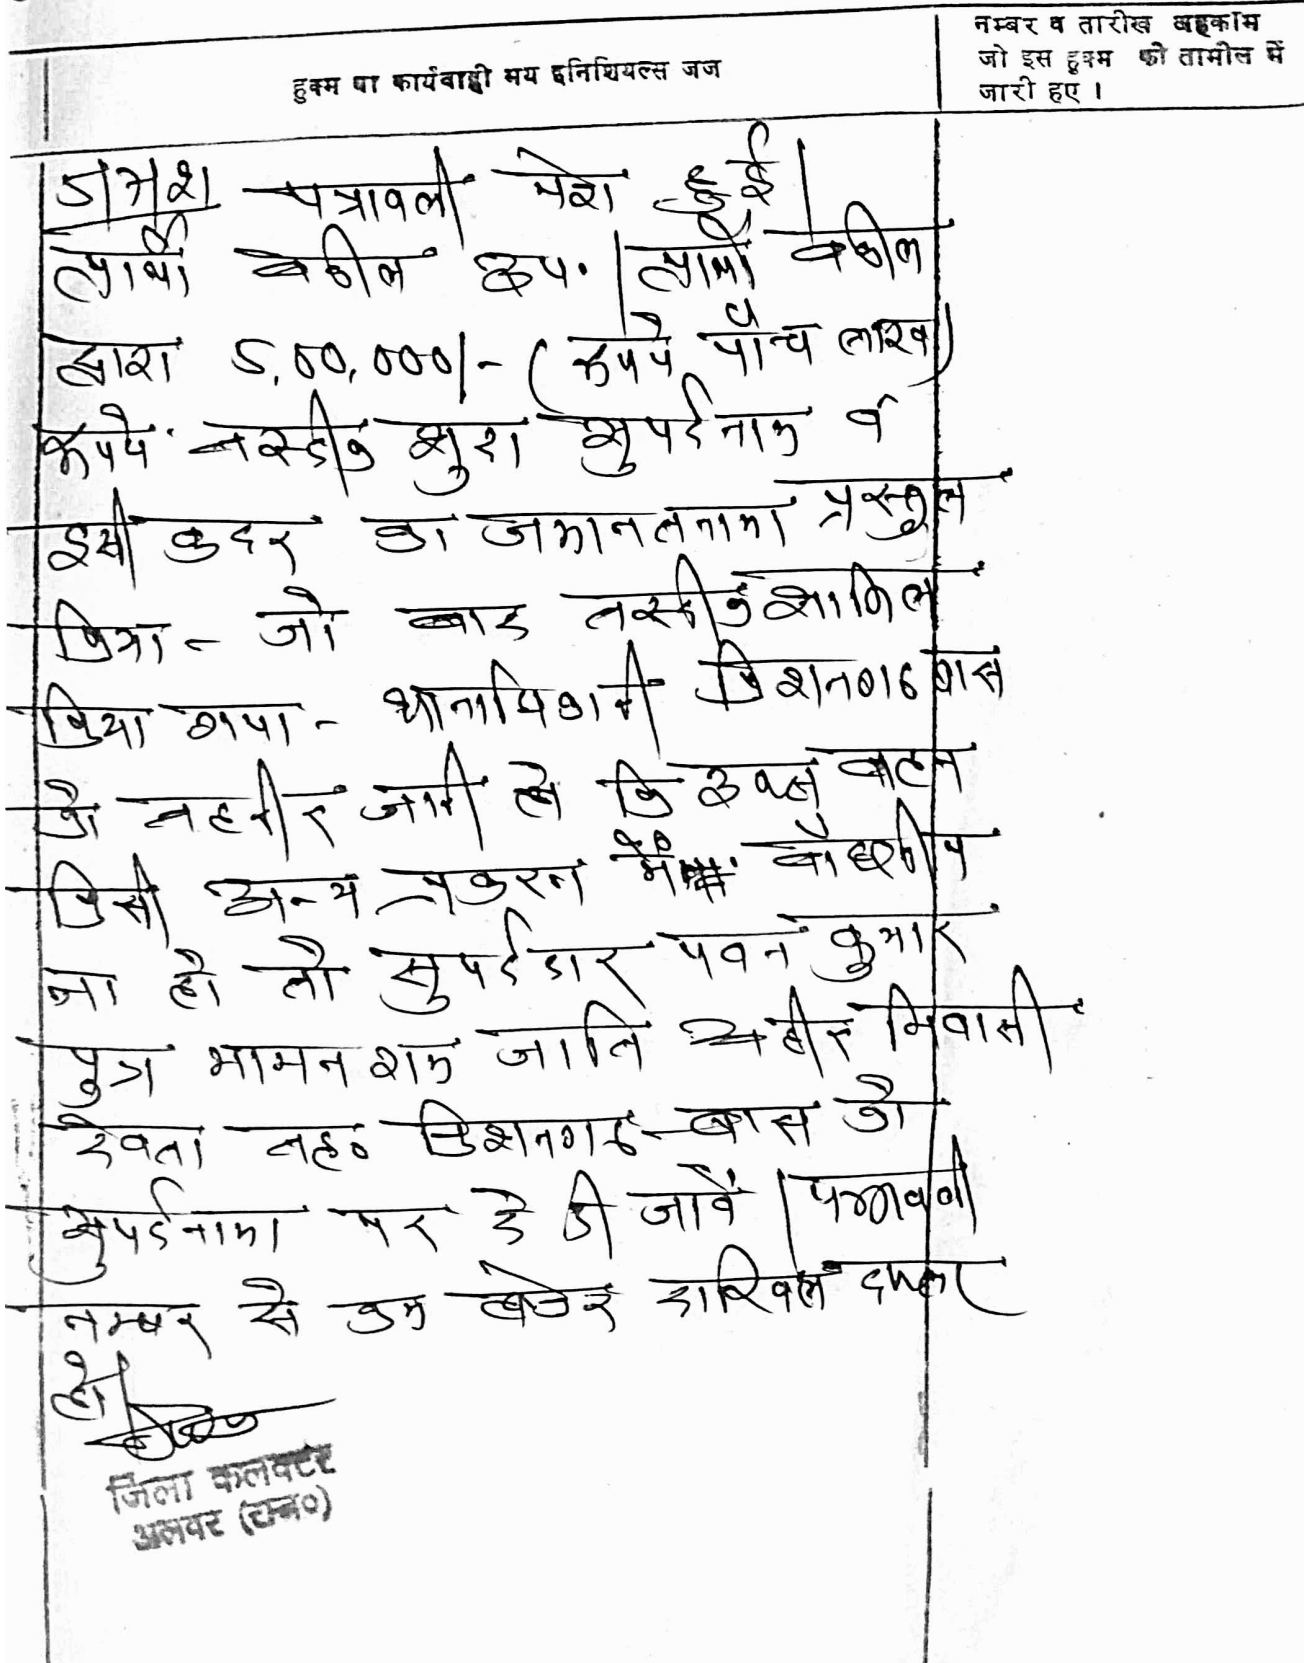 हुक्म या कार्यवाही मय इनिशियल्स जज
नम्बर व तारीख अहकाम
जो इस हुक्म की तामील में
जारी हुए ।
पत्रावली पेश हुई।
प्रार्थी वकील उप. । प्रार्थी वकील
द्वारा 5,00,000/- (रूपये पाँच लाख)
रूपये तस्दीक शुदा सुपर्दनाम व
इसी कदर का जमानतनामा प्रस्तुत
किया - जो बाद तस्दीक शामिल
किया गया - थानाधिकारी किशनगढ बास
को तहरीर जारी हो कि उक्त वाहन
किसी अन्य प्रकरन में वांछनीय
ना हो तो सुपर्ददार पवन कुमार
पुत्र मामन राम जाति अहीर निवासी
तह० किशनगढ-बास को
सुपर्दनामा पर दे दी जावें । पत्रावली
नम्बर से कम होकर दाखिल दफ्तर
हो।
जिला कलक्टर
अलवर (राज०)